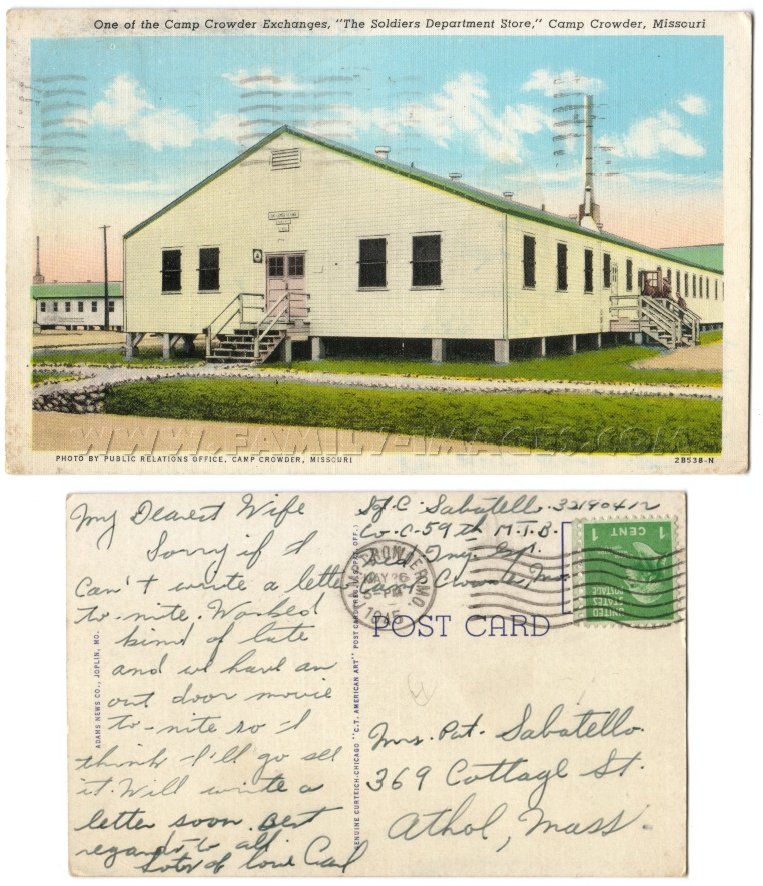 One of the Camp Crowder Exchanges, "The Soldiers Department Store," Camp Crowder, Missouri
WWW.FAMILY-IMAGES.COM
PHOTO BY PUBLIC RELATIONS OFFICE, CAMP CROWDER, MISSOURI
2B538-N
My Dearest Wife
Sorry if I
Can't write a letter
to-nite. Worked
kind of late
and we have an
out door movie
to-nite so I
think I'll go see
it. Will write a
letter soon. Best
regards to all.
Lots of love Carl
ADAMS NEWS CO., JOPLIN, MO.
GENUINE CURTEICH-CHICAGO "C.T. AMERICAN ART" POST CARD (REG. U.S. PAT. OFF.)
Sgt. C. Sabatello 32190412
Co-C-59th M.T.B.
Camp Crowder, Mo.
CROWDER, MO.
MAY 26
5-PM
1945
1 CENT 1
UNITED
STATES
POSTAGE
POST CARD
Mrs. Pat. Sabatello
369 Cottage St.
Athol, Mass.